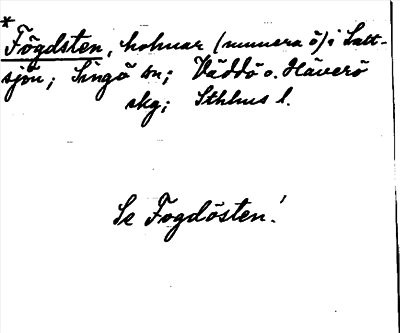 *
Fögdsten, holmar (numera ö) i Salt-
sjön; Singö sn; Väddö o. Häverö
skg; Sthlms l.
Se Fogdösten!